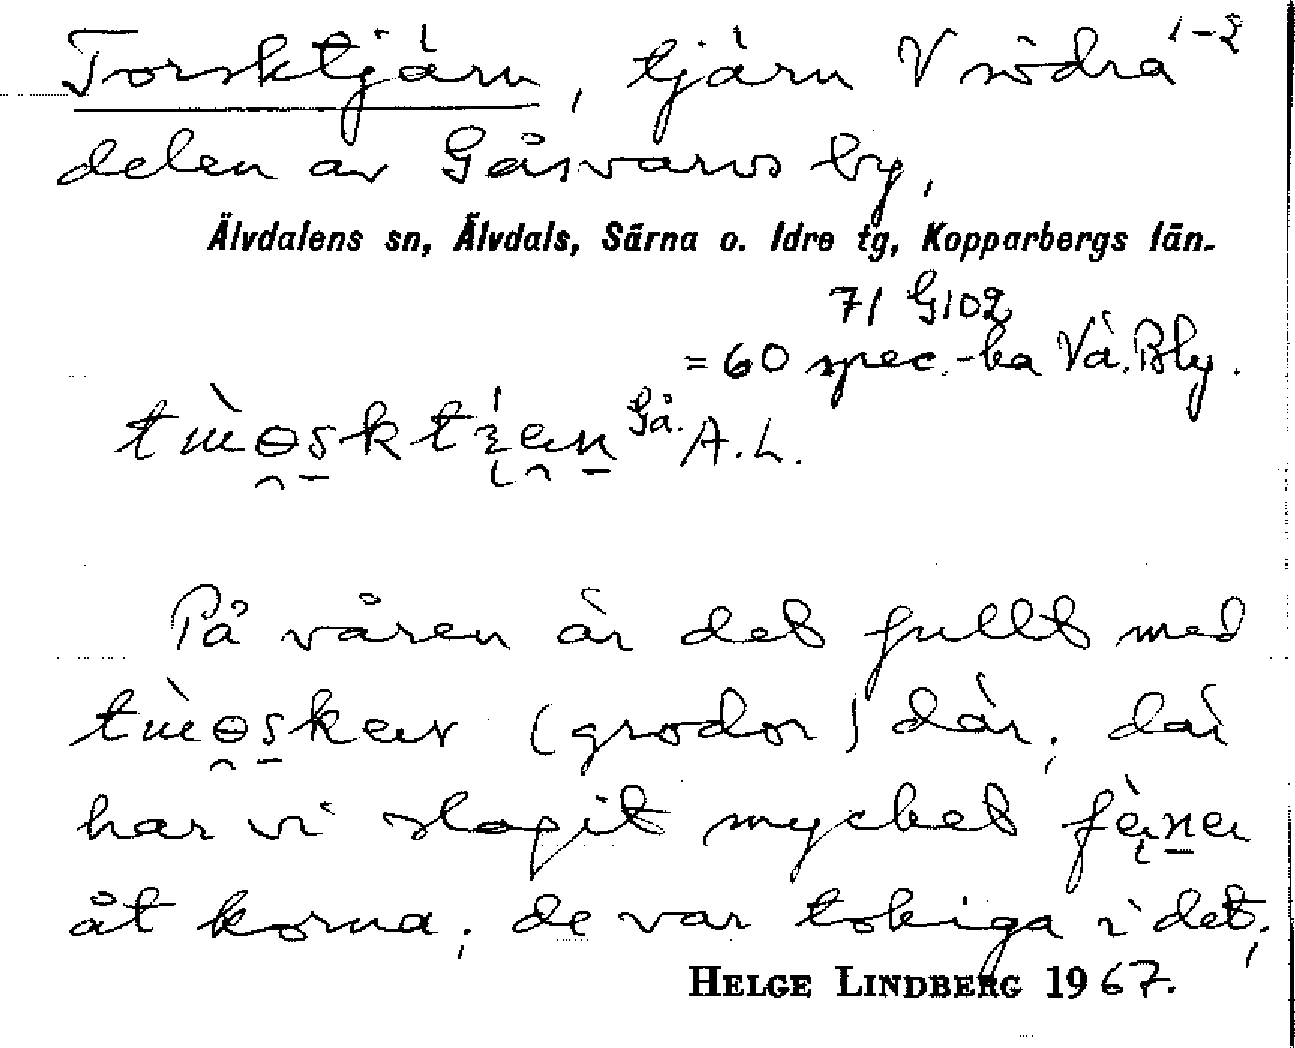 Torsktjärn, tjärn V södra 1-2
delen av Gåsvarvs by,
Älvdalens sn, Älvdals, Särna o. Idre tg, Kopparbergs län.
71 G102
= 60 spec.-ka Vä. Bly.
Gå. A. L.
På våren är det fullt med
(grodor) där; där
har vi slagit mycket
åt korna; de var tokiga i det;
HELGE LINDBERG 1967.